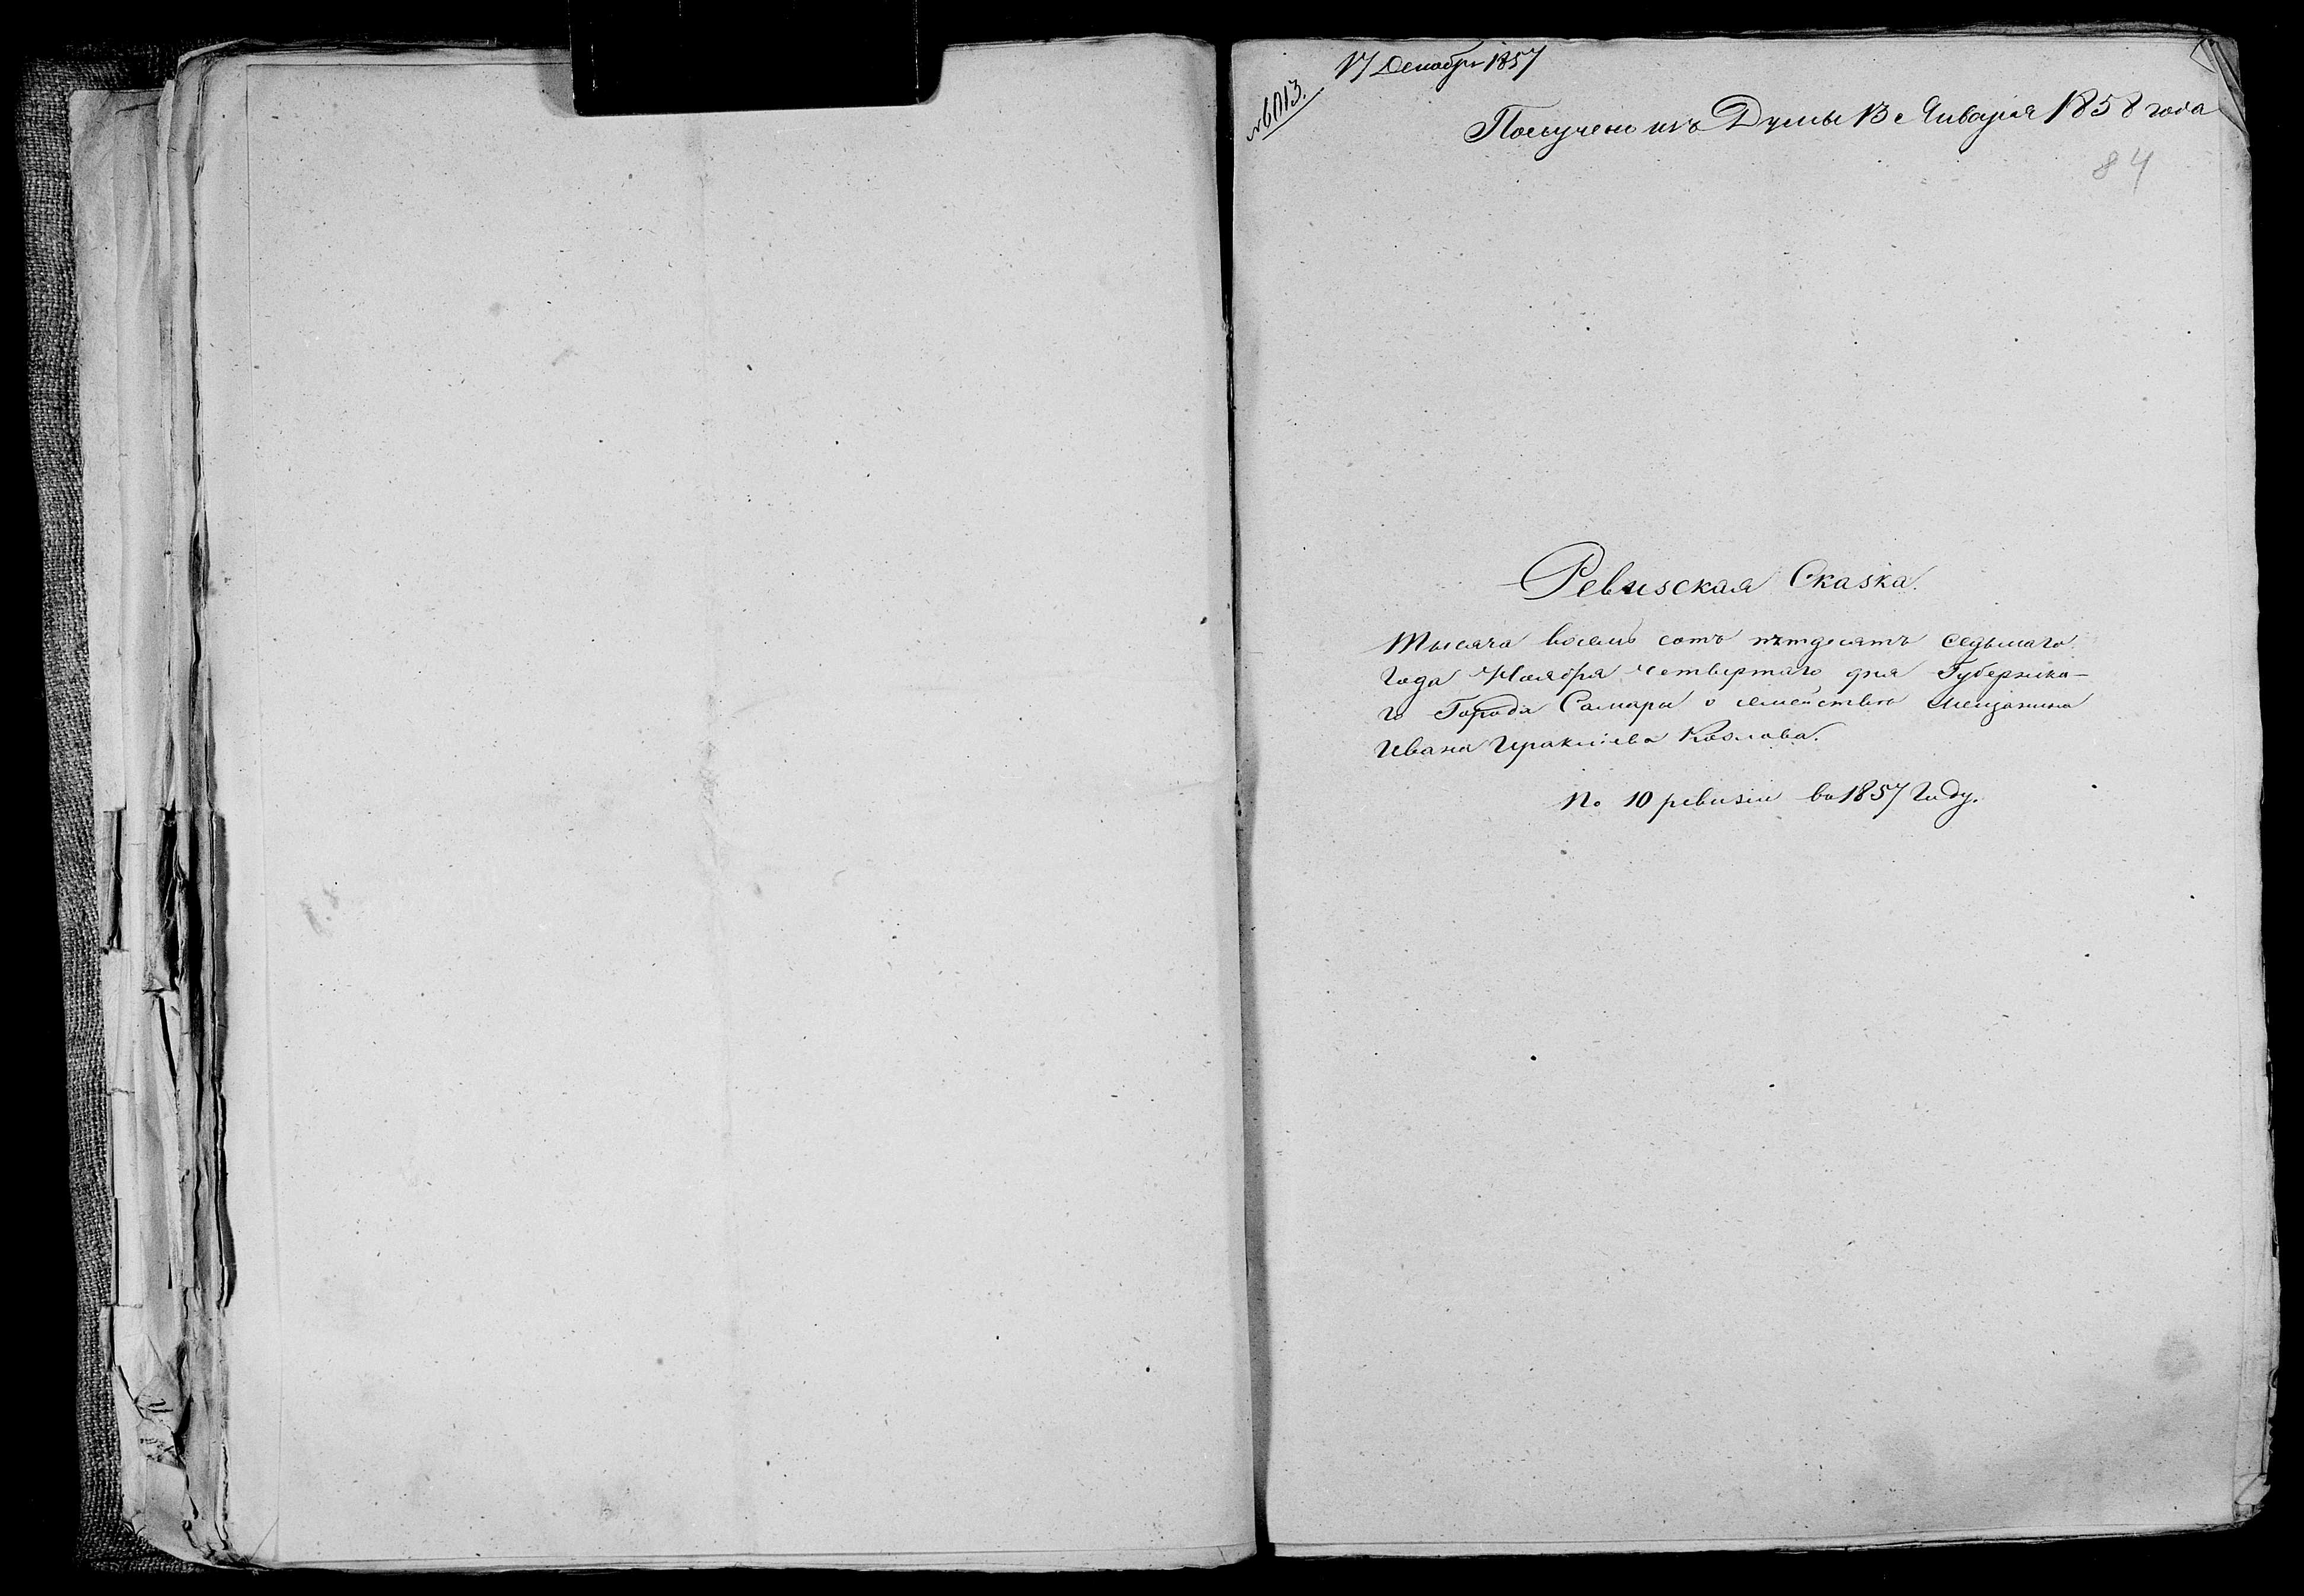 17 Декабря 1857
№ 6013.
Получено изъ Думы 13 Января 1858 года
84
Ревизская Сказка.
Тысяча восемь сотъ пятдесятъ седьмаго
года Ноября четвертаго дня Губернска-
го Города Самары о семействе Мещанина
Ивана Ираклиева Козлова.
По 10 ревизiи въ 1857 Году.